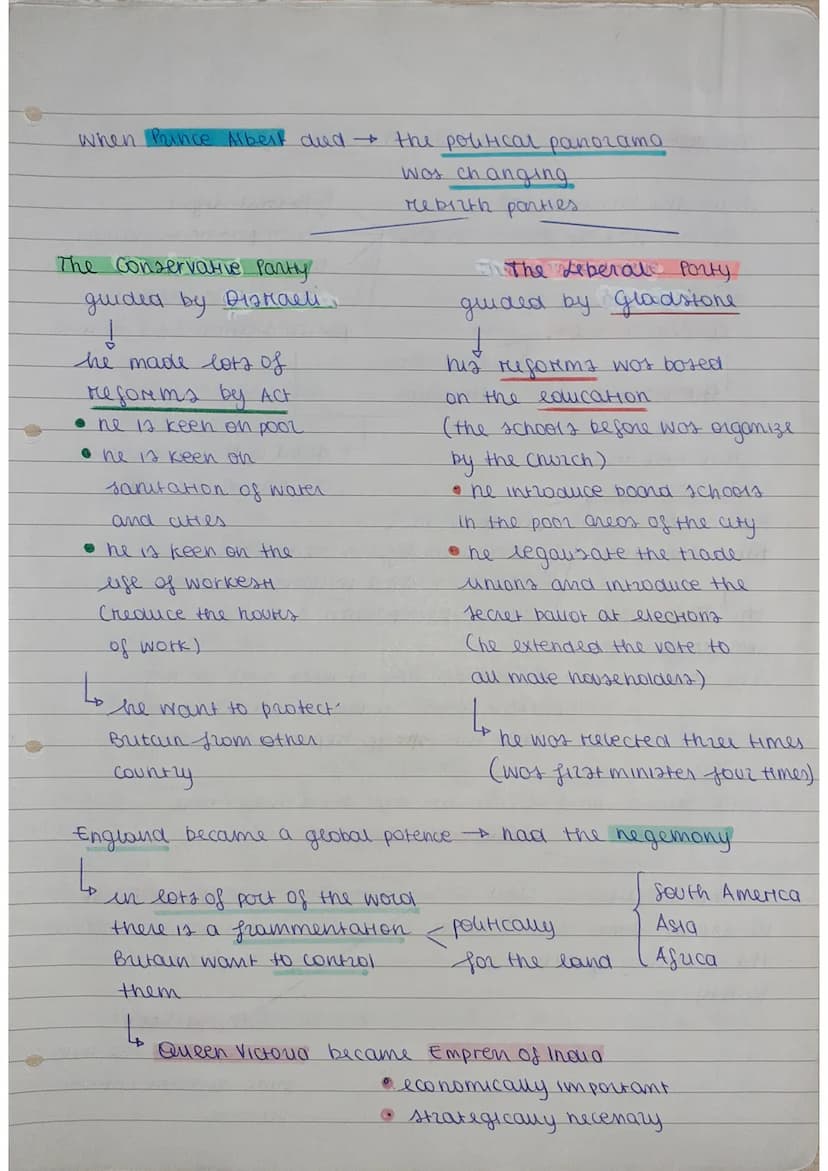 when Prince Albert died → the political panorama
was changing
rebirth parties
The Conservative Party
guided by Disraeli
↓
he made lots of
reforms by Act
• he is keen on poor
• he is keen on
sanitation of water
and cities
• he is keen on the
life of workers
(reduce the hours
of work)
↳ he want to protect
Britain from other
country
The Liberal Party
guided by Gladstone
↓
his reforms was based
on the education
(the schools before was organize
by the Church)
• he introduce board schools
in the poor areas of the city
• he legalizate the trade
unions and introduce the
secret ballot at elections
(he extended the vote to
all male householders)
↳ he was relected three times
(was first minister four times)
England became a global potence → had the hegemony
↳ in lots of part of the word
there is a frammentation < politically
for the land
Britain want to control
them
{ South America
Asia
Africa
↳ Queen Victoria became Empress of India
• economically important
• strategically necessary